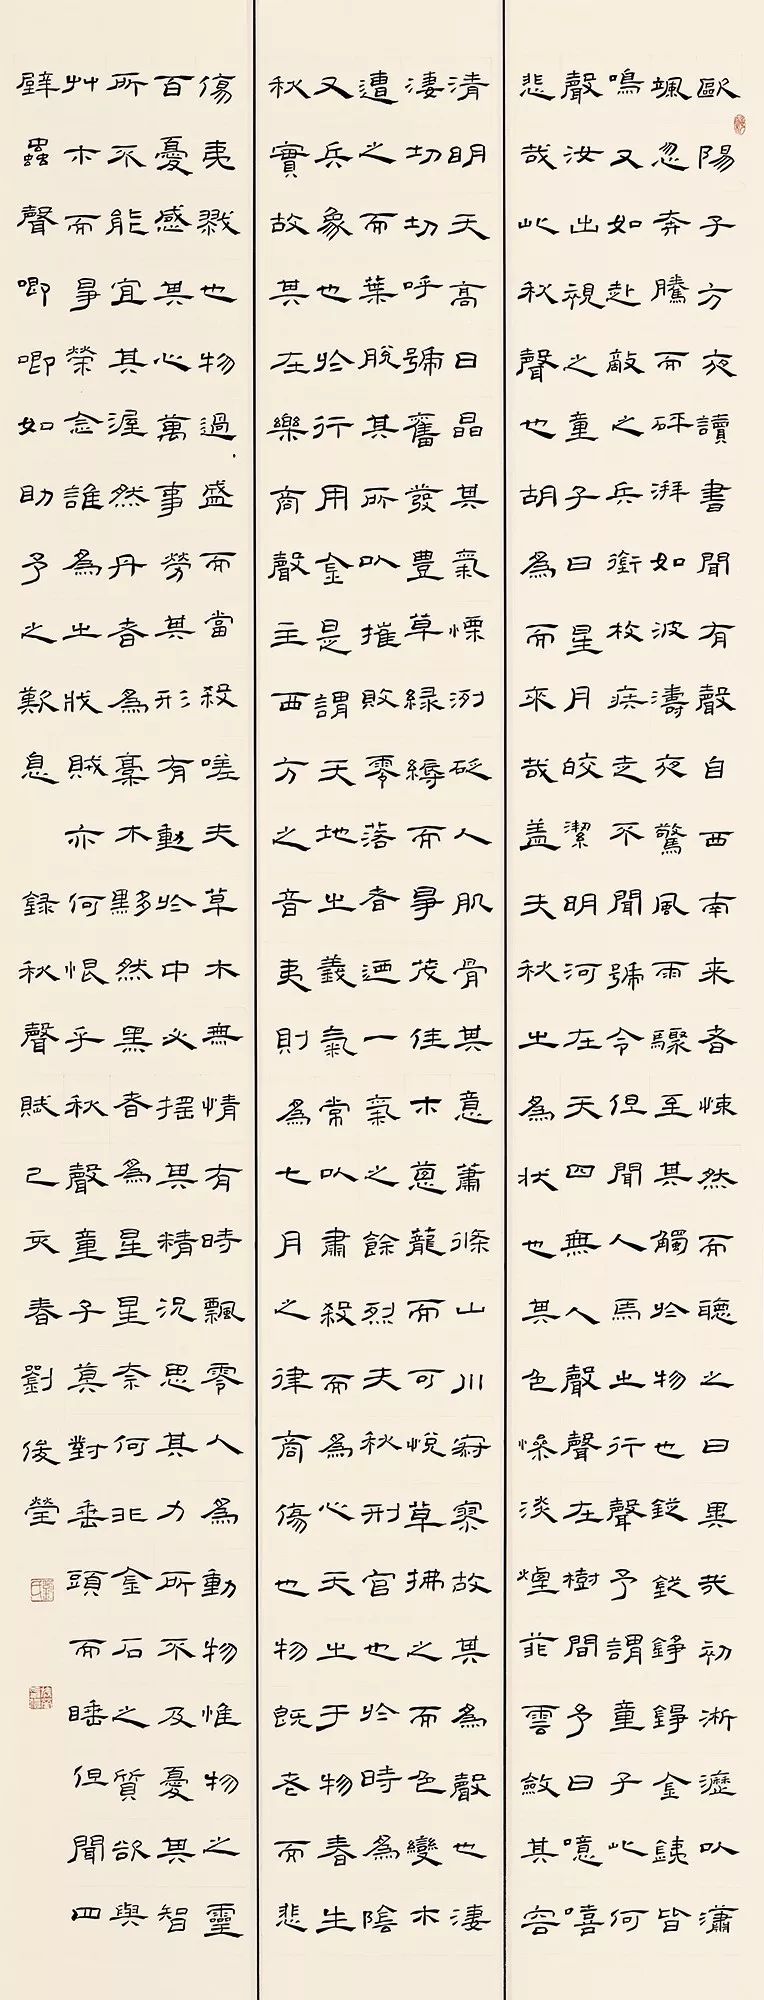 歐陽子方夜讀書聞有聲自西南来者悚然而聽之曰異哉初淅瀝以瀟
颯忽奔騰而砰湃如波濤夜驚風雨驟至其觸於物也鏦鏦錚錚金鐵皆
鳴又如赴敵之兵銜枚疾走不聞號令但聞人馬之行聲予謂童子此何
聲汝出視之童子曰星月皎潔明河在天四無人聲聲在樹間予曰噫嘻
悲哉此秋聲也胡為而来哉盖夫秋之為状也其色惨淡煙霏雲斂其容
清明天高日晶其氣慄冽砭人肌骨其意蕭條山川寂寥故其為聲也淒
淒切切呼號奮發豐草綠縟而爭茂佳木蔥蘢而可悅草拂之而色變木
遭之而葉脫其所以摧敗零落者迺一氣之餘烈夫秋刑官也於時為陰
又兵象也於行用金是謂天地之義氣常以肅殺而為心天之于物春生
秋實故其在樂商聲主西方之音夷則為七月之律商傷也物既老而悲
傷夷戮也物過盛而當殺嗟夫草木無情有時飄零人為動物惟物之靈
百憂感其心萬事勞其形有動於中必搖其精況思其力所不及憂其智
所不能宜其渥然丹者為槀木黟然黑者為星星奈何非金石之質欲與
艸木而爭榮念誰為之戕賊亦何恨乎秋聲童子莫對垂頭而睡但聞四
壁蟲聲唧唧如助予之歎息 録秋聲賦己亥春劉後瑩